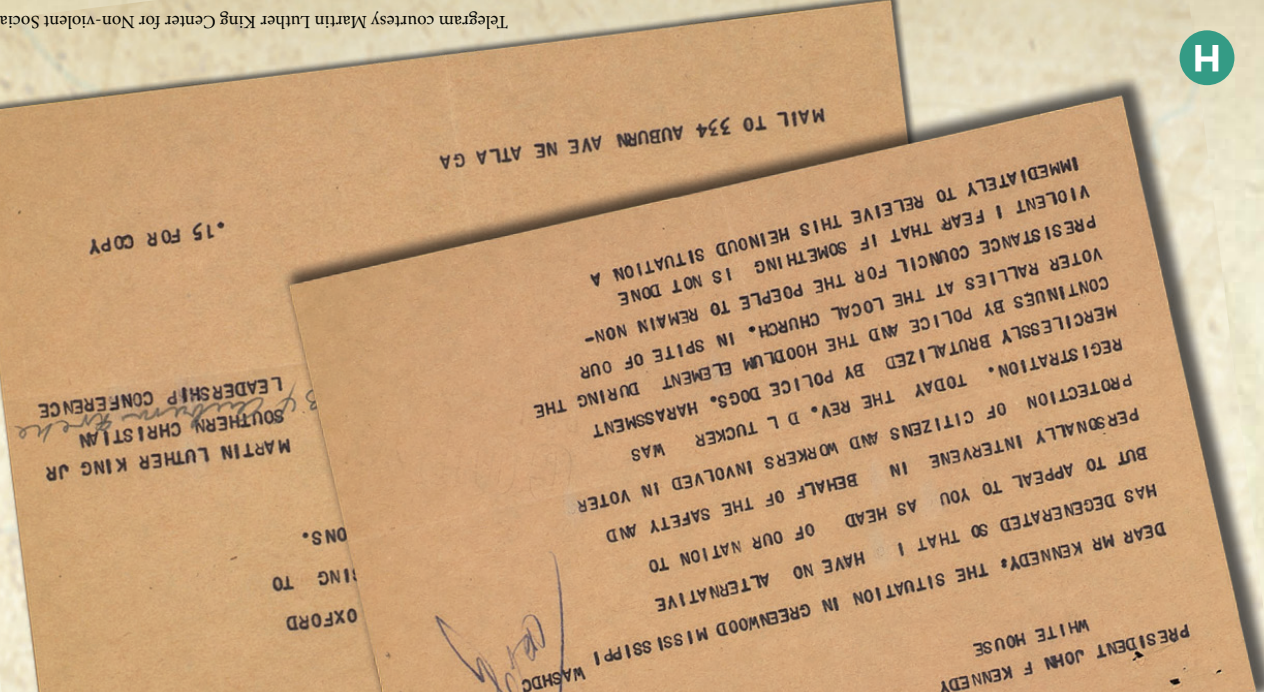 PRESIDENT JOHN F KENNEDY
WHITE HOUSE
WASHDC
DEAR MR KENNEDY: THE SITUATION IN GREENWOOD MISSISSIPPI
HAS DEGENERATED SO THAT I HAVE NO ALTERNATIVE
BUT TO APPEAL TO YOU AS HEAD OF OUR NATION TO
PERSONALLY INTERVENE IN BEHALF OF THE SAFETY AND
PROTECTION OF CITIZENS AND WORKERS INVOLVED IN VOTER
REGISTRATION. TODAY THE REV. D L TUCKER WAS
MERCILESSLY BRUTALIZED BY POLICE DOGS. HARASSMENT
CONTINUES BY POLICE AND THE HOODLUM ELEMENT DURING THE
VOTER RALLIES AT THE LOCAL CHURCH. IN SPITE OF OUR
PRESISTANCE COUNCIL FOR THE POEPLE TO REMAIN NON-
VIOLENT I FEAR THAT IF SOMETHING IS NOT DONE
IMMEDIATELY TO RELEIVE THIS HEINOUD SITUATION A
OXFORD
ING TO
ONS.
MARTIN LUTHER KING JR
SOUTHERN CHRISTIAN
LEADERSHIP CONFERENCE
.15 FOR COPY
MAIL TO 334 AUBURN AVE NE ATLA GA
Telegram courtesy Martin Luther King Center for Non-violent Social
H